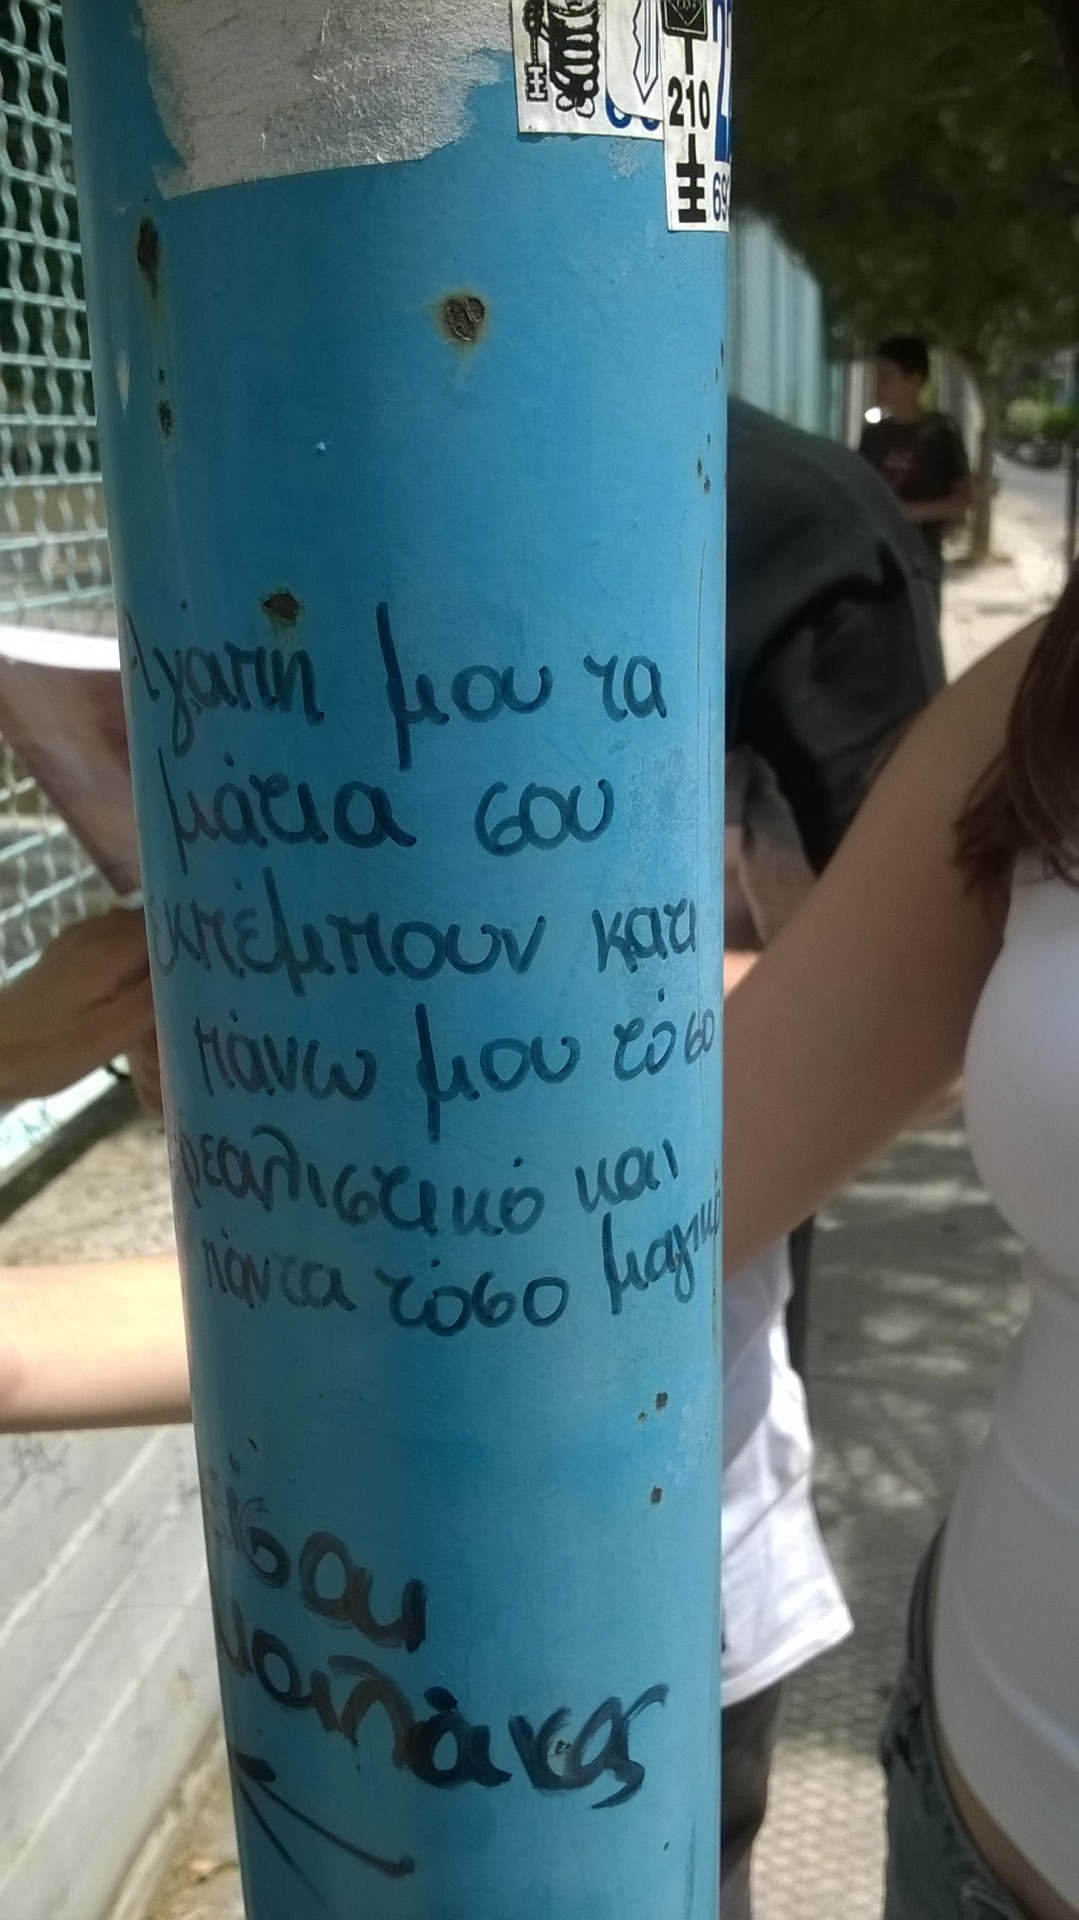 210
69
Αγαπη μου τα
μάτια σου
εκπέμπουν κατι
πάνω μου τόσο
ρεαλιστικό και
πάντα τόσο μαγικό
είσαι